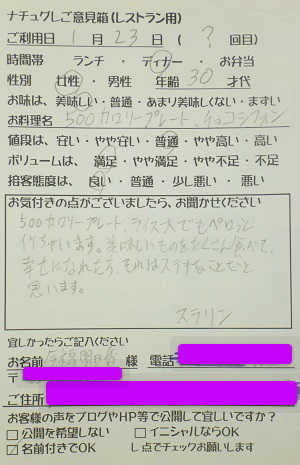 ナチュグしご意見箱(レストラン用)
ご利用日 1 月 23 日 ( ? 回目)
時間帯 ランチ ・ ディナー ・ お弁当
性別 女性 ・ 男性 年齢 30 才代
お味は、美味しい・普通・あまり美味しくない・まずい
お料理名 500カロリープレート、チョコシフォン
値段は、安い・やや安い・普通・やや高い・高い
ボリュームは、満足・やや満足・やや不足・不足
接客態度は、良い・普通・少し悪い・悪い
お気付きの点がございましたら、お聞かせください
500カロリープレート、ライス大でもペロッと
イケちゃいます。美味しいものをたくさん食べて、
幸せになれたら、それはステキなことだと
思います。
スラリン
宜しかったらご記入ください
お名前 様 電話
〒
ご住所
お客様の声をブログやHP等で公開して宜しいですか?
□公開を希望しない □イニシャルならOK
☑名前付きでOK し点でチェックお願いします